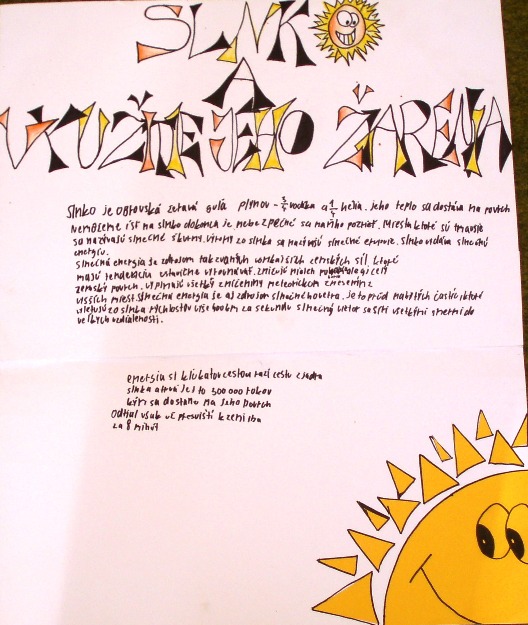 SLNKO
A
VYUŽITIE JEHO ŽIARENIA
Slnko je obrovská žeravá guľa plynov - 3/4 vodíka a 1/4 hélia. Jeho teplo sa dostáva na povrch
Nemôžeme ísť na slnko dokonca je nebezpečné sa naňho pozrieť. Miesta ktoré sú tmavšie
sa nazívajú slnečné škvrny. Výrony zo slnka sa nazívajú slnečné erupcie. Slnko vydáva slnečnú
energiu.
Slnečná energia je zdrojom takzvaných vonkajších zemských síl ktoré
majú tendenciu zemský povrch
vyšších miest. Slnečná energia je aj zdrojom slnečného vetra. Je to prúd nabitých častíc ktoré
vyletujú zo slnka rýchlosťou vyše 400 km za sekundu slnečný vietor sa šíri všetkými smermi do
veľkých vzdialeností.
energia si kľukatou cestou razí cestu z jadra
slnka a trvá jej to 300 000 rokov
kým sa dostane na jeho povrch
Odtiaľ však už presviští k zemi iba
za 8 minút